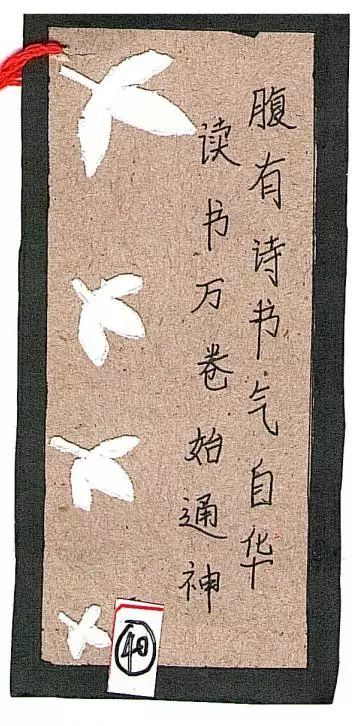 腹有诗书气自华
读书万卷始通神
40